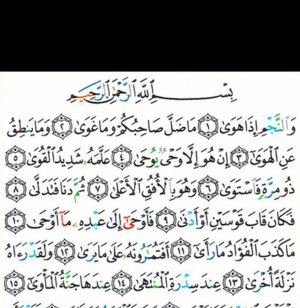 بِسْمِ ٱللَّهِ ٱلرَّحْمَٰنِ ٱلرَّحِيمِ
وَٱلنَّجْمِ إِذَا هَوَىٰ ١ مَا ضَلَّ صَاحِبُكُمْ وَمَا غَوَىٰ ٢ وَمَا يَنطِقُ
عَنِ ٱلْهَوَىٰ ٣ إِنْ هُوَ إِلَّا وَحْيٌ يُوحَىٰ ٤ عَلَّمَهُۥ شَدِيدُ ٱلْقُوَىٰ ٥
ذُو مِرَّةٍ فَٱسْتَوَىٰ ٦ وَهُوَ بِٱلْأُفُقِ ٱلْأَعْلَىٰ ٧ ثُمَّ دَنَا فَتَدَلَّىٰ ٨
فَكَانَ قَابَ قَوْسَيْنِ أَوْ أَدْنَىٰ ٩ فَأَوْحَىٰٓ إِلَىٰ عَبْدِهِۦ مَآ أَوْحَىٰ ١٠
مَا كَذَبَ ٱلْفُؤَادُ مَا رَأَىٰٓ ١١ أَفَتُمَٰرُونَهُۥ عَلَىٰ مَا يَرَىٰ ١٢ وَلَقَدْ رَءَاهُ
نَزْلَةً أُخْرَىٰ ١٣ عِندَ سِدْرَةِ ٱلْمُنتَهَىٰ ١٤ عِندَهَا جَنَّةُ ٱلْمَأْوَىٰٓ ١٥